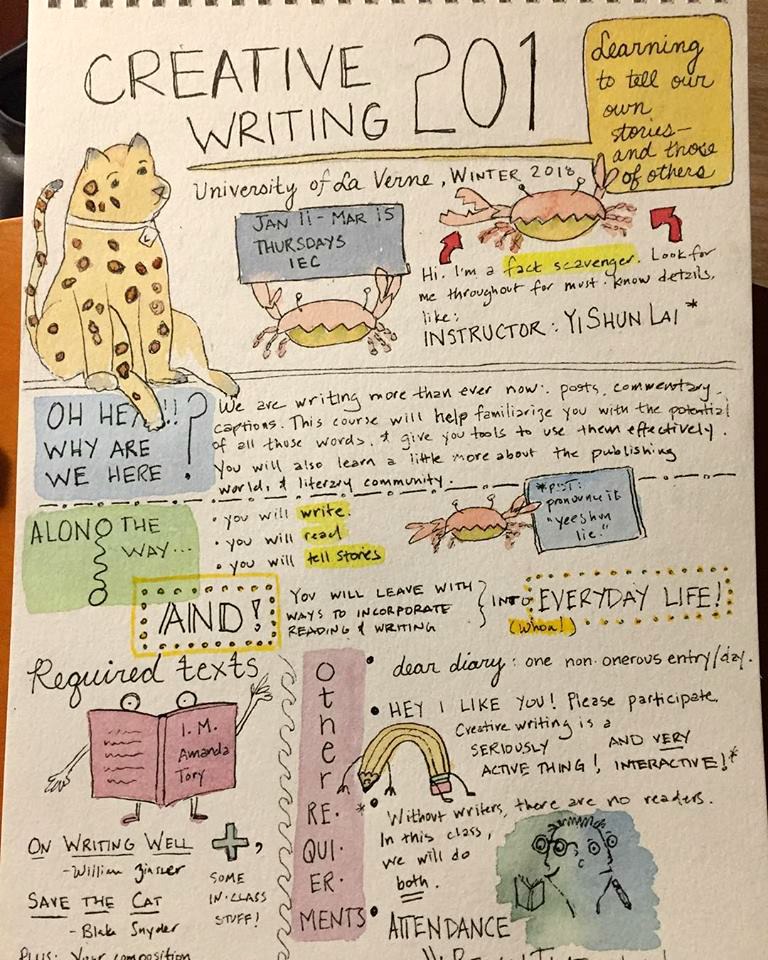 CREATIVE
WRITING 201
Learning
to tell our
own
stories—
and those
of others
University of La Verne, WINTER 2018
JAN 11 - MAR 15
THURSDAYS
IEC
Hi. I'm a fact scavenger. Look for
me throughout for must-know details,
like:
INSTRUCTOR: YI SHUN LAI*
OH HEY!!
WHY ARE
WE HERE?
We are writing more than ever now: posts, commentary,
captions. This course will help familiarize you with the potential
of all those words, & give you tools to use them effectively.
You will also learn a little more about the publishing
world & literary community.
*PST:
pronounce it
"yeeshun
lie."
ALONG THE
WAY...
• you will write.
• you will read
• you will tell stories
AND!
YOU WILL LEAVE WITH
WAYS TO INCORPORATE
READING & WRITING
INTO EVERYDAY LIFE!
(whoa!)
Required texts
I. M.
Amanda
Tory
ON WRITING WELL
-William Zinsser
SAVE THE CAT
- Blake Snyder
PLUS: Your composition
+,
SOME
IN-CLASS
STUFF!
Other
RE·
QUI·
ER·
MENTS
• dear diary: one non-onerous entry/day.
• HEY I LIKE YOU! Please participate.
Creative writing is a
SERIOUSLY AND VERY
ACTIVE THING! INTERACTIVE!*
*• Without writers, there are no readers.
In this class,
we will do
both.
• ATTENDANCE